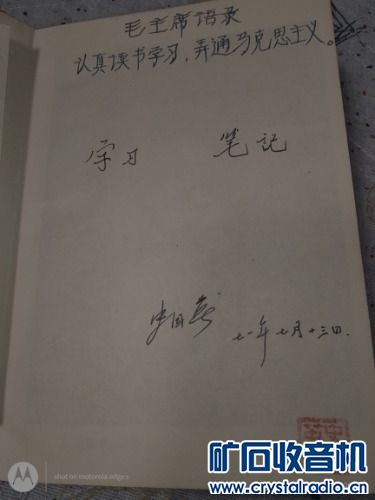 毛主席语录
认真读书学习,弄通马克思主义。
学习 笔记
七一年七月十三日.
shot on motorola edge s
矿石收音机
www.crystalradio.cn